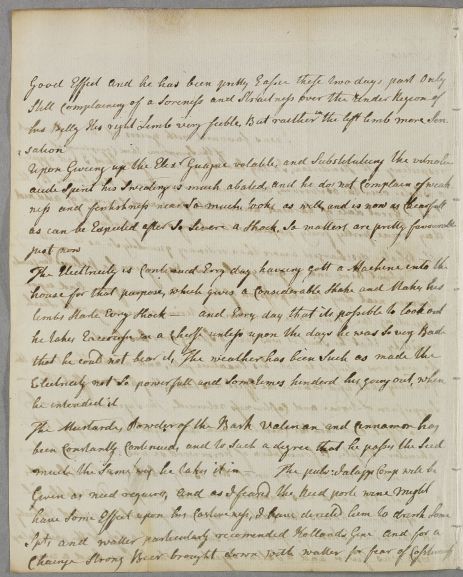 Good Effect and he has been pretty Easie these two days past Only
Still Complaining of a Soreness and Straitness over the Under Region of
his Belly His right Limb very feeble, But raither in the left limb more Sen
sation
Upon Giveing up the Elixr Guajac volatile, and Substituteing the
acide Spirit his Sweating is much abated, and he do not Complain of weak
ness and feverishness near So much looks as well, and is now as Chearfull
as can be Expected after So Severe a Shock, So matters are pretty favourable
just now
The Electricity is Continued Every day, having gott a Machine into the
house for that purpose, which gives a Considerable Shake and Makes his
limbs Startle Every Shock — and Every day that its possible to look out
he takes Exercise in a Chaise unless upon the days he was So very Bad
that he could not bear it, The weather has been Such as made the
Electricity not So powerfull and Sometimes hinderd his going out, when
he intended it
The Mustard, Powder of the Bark Valerian and Cinnamon has
been Constantly Continued, and to Such a degree that he passes the Seed
much the Same way he takes it in — The pulv: Jalapp Comp will be
Given as need requires, and as I feard the Reed port wine might
have Some Effect upon his Costiveness, I have directed him to drink Some
and watter particularly recomended Hollands Gine and for a
Chainge Strong Beer brought down with watter for fear of